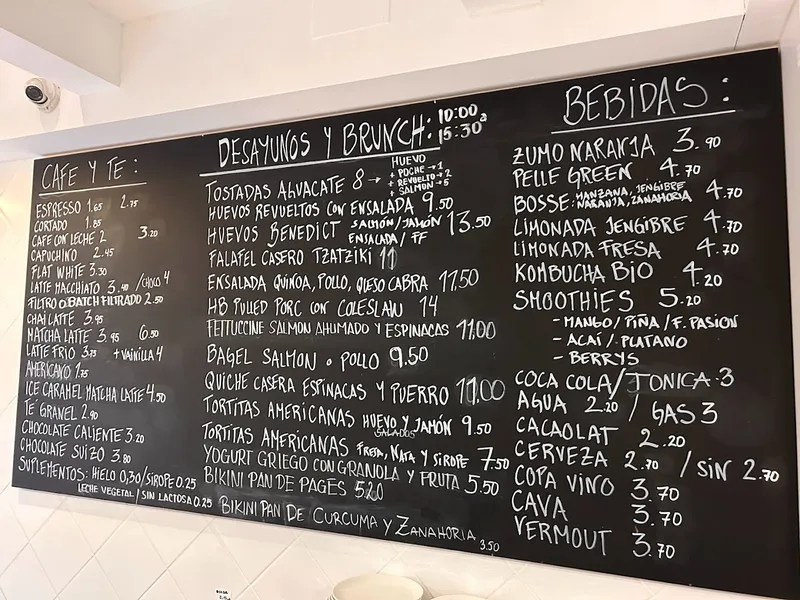 CAFE Y TE:
ESPRESSO 1.65 2.75
CORTADO 1.85
CAFE CON LECHE 2 3.20
CAPUCHINO 2.45
FLAT WHITE 3.30
LATTE MACCHIATO 3.40 /CHOCO 4
FILTRO O BATCH FILTRADO 2.50
CHAI LATTE 3.95
MATCHA LATTE 3.95 6.50
LATTE FRIO 3.75 + VAINILLA 4
AMERICANO 1.75
ICE CARAMEL MATCHA LATTE 4.50
TÉ GRANEL 2.90
CHOCOLATE CALIENTE 3.20
CHOCOLATE SUIZO 3.80
SUPLEMENTOS: HIELO 0,30/SIROPE 0.25
LECHE VEGETAL / SIN LACTOSA 0.25
DESAYUNOS Y BRUNCH: 10:00 a
15:30
TOSTADAS AGUACATE 8 →
HUEVO
+ POCHE → 1
+ REVUELTO → 2
+ SALMON → 5
HUEVOS REVUELTOS CON ENSALADA 9.50
HUEVOS BENEDICT SALMÓN/JAMÓN 13.50
ENSALADA / FF
FALAFEL CASERO TZATZIKI 11
ENSALADA QUINOA, POLLO, QUESO CABRA 11.50
HB PULLED PORC CON COLESLAW 14
FETTUCCINE SALMON AHUMADO Y ESPINACAS 11.00
BAGEL SALMON O POLLO 9.50
QUICHE CASERA ESPINACAS Y PUERRO 11.00
TORTITAS AMERICANAS HUEVO Y JAMÓN 9.50
SALADAS
TORTITAS AMERICANAS FRESA, NATA Y SIROPE 7.50
YOGURT GRIEGO CON GRANOLA Y FRUTA 5.50
BIKINI PAN DE PAGES 5.20
BIKINI PAN DE CURCUMA Y ZANAHORIA 3.50
BEBIDAS:
ZUMO NARANJA 3.90
PELLE GREEN 4.70
BOSSE: MANZANA, JENGIBRE 4.70
NARANJA, ZANAHORIA
LIMONADA JENGIBRE 4.70
LIMONADA FRESA 4.70
KOMBUCHA BIO 4.20
SMOOTHIES 5.20
- MANGO/PIÑA/F. PASION
- ACAÍ / PLATANO
- BERRYS
COCA COLA/TONICA 3
AGUA 2.20 / GAS 3
CACAOLAT 2.20
CERVEZA 2.70 / SIN 2.70
COPA VINO 3.70
CAVA 3.70
VERMOUT 3.70